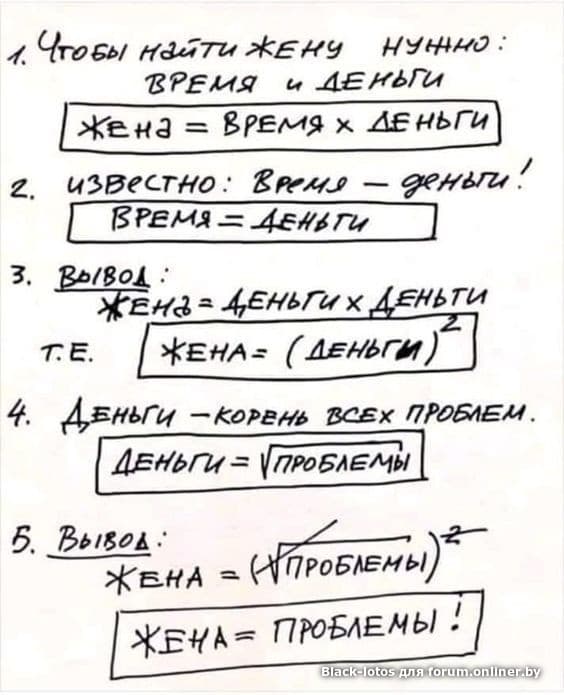 1. Чтобы найти жену нужно:
время и деньги
жена = время x деньги
2. известно: Время – деньги!
время = деньги
3. Вывод:
жена = деньги x деньги
т.е. жена = (деньги)²
4. Деньги – корень всех проблем.
деньги = √проблемы
5. Вывод:
жена = (√проблемы)²
жена = проблемы!
Black-lotos для forum.onliner.by